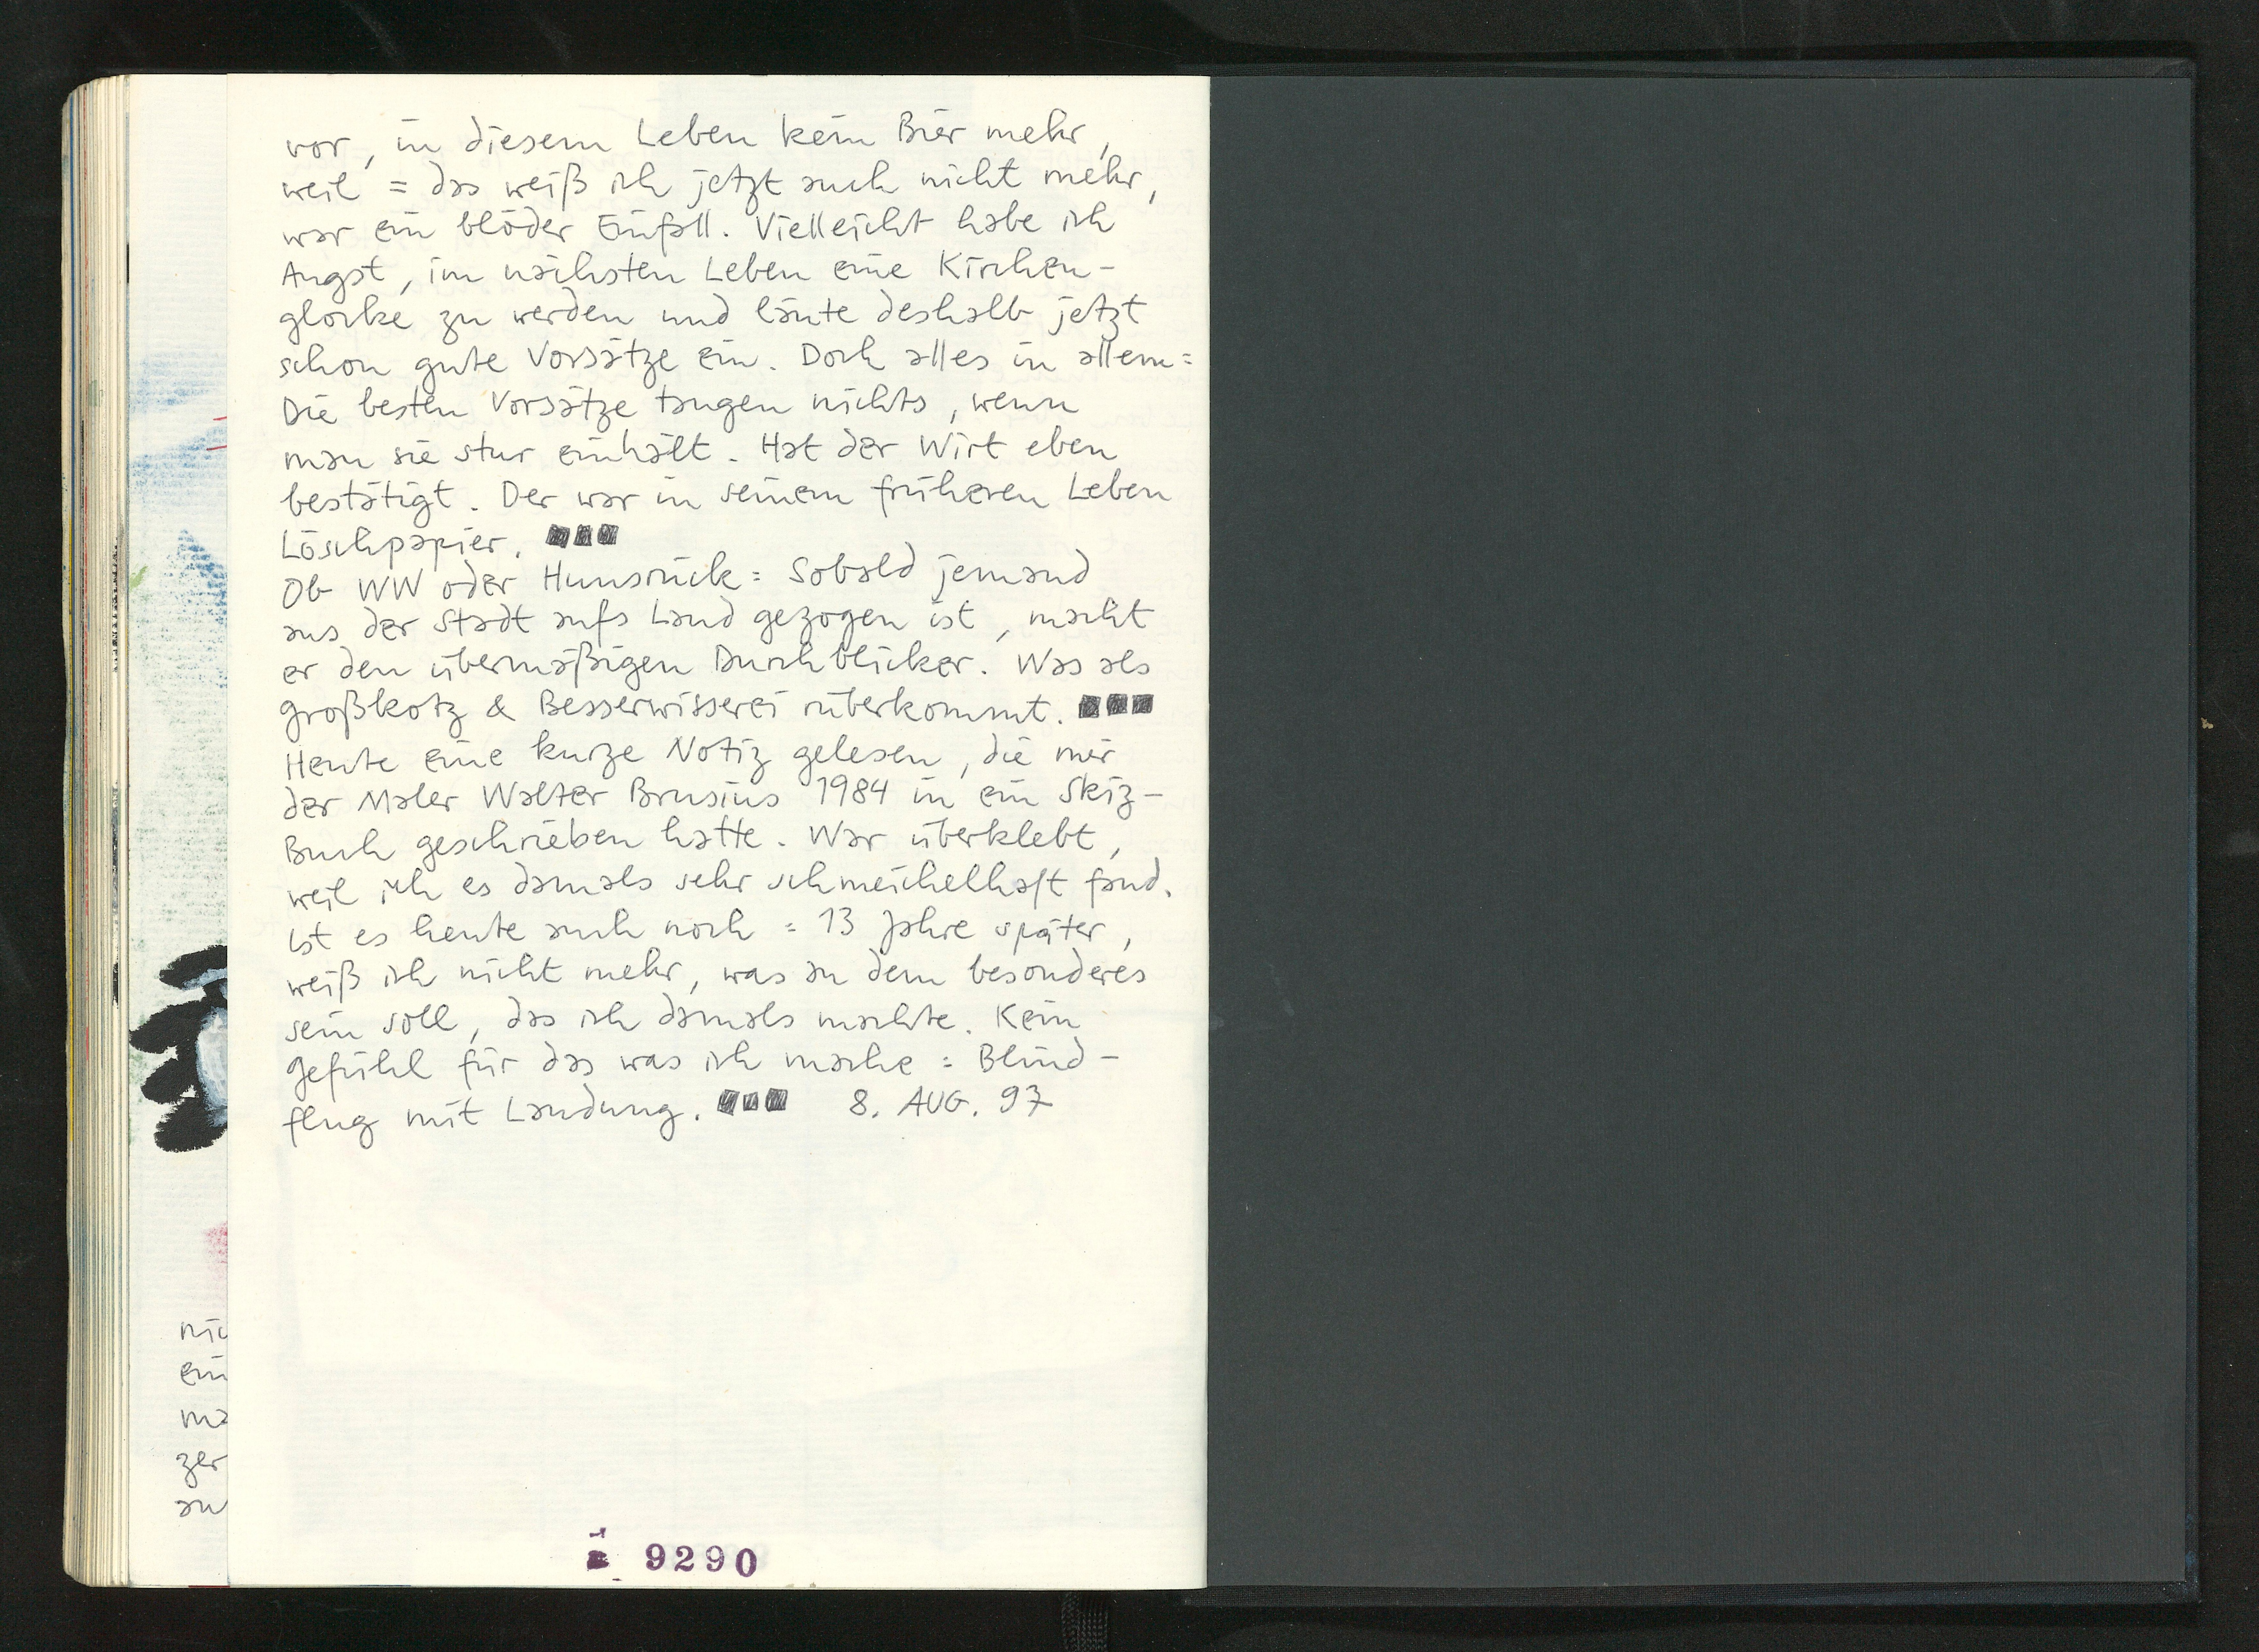 vor, in diesem Leben kein Bier mehr,
weil = das weiß ich jetzt auch nicht mehr,
war ein blöder Einfall. Vielleicht habe ich
Angst, im nächsten Leben eine Kirchen-
glocke zu werden und läute deshalb jetzt
schon gute Vorsätze ein. Doch alles in allem =
Die besten Vorsätze taugen nichts, wenn
man sie stur einhält. Hat der Wirt eben
bestätigt. Der war in seinem früheren Leben
Löschpapier. ■■■
Ob WW oder Hunsrück = Sobald jemand
aus der Stadt aufs Land gezogen ist, macht
er den übermäßigen Durchblicker. Was als
Großkotz & Besserwisserei rüberkommt. ■■■
Heute eine kurze Notiz gelesen, die mir
der Maler Walter Brusius 1984 in ein Skiz-
Buch geschrieben hatte. War überklebt,
weil ich es damals sehr schmeichelhaft fand.
Ist es heute auch noch = 13 Jahre später,
weiß ich nicht mehr, was an dem besonderes
sein soll, das ich damals machte. Kein
Gefühl für das was ich mache = Blind-
flug mit Landung. ■■■ 8. AUG. 97
nic
ein
ma
zer
au
9290